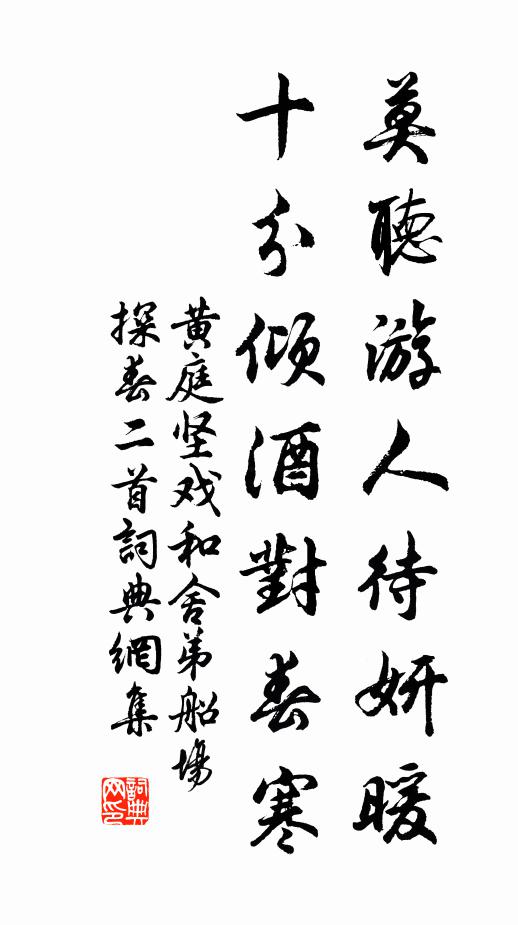 莫聽游人待妍暖
十分傾酒對春寒
黄庭坚戏和舍弟船場
探春二首詞典網集
詞典网印